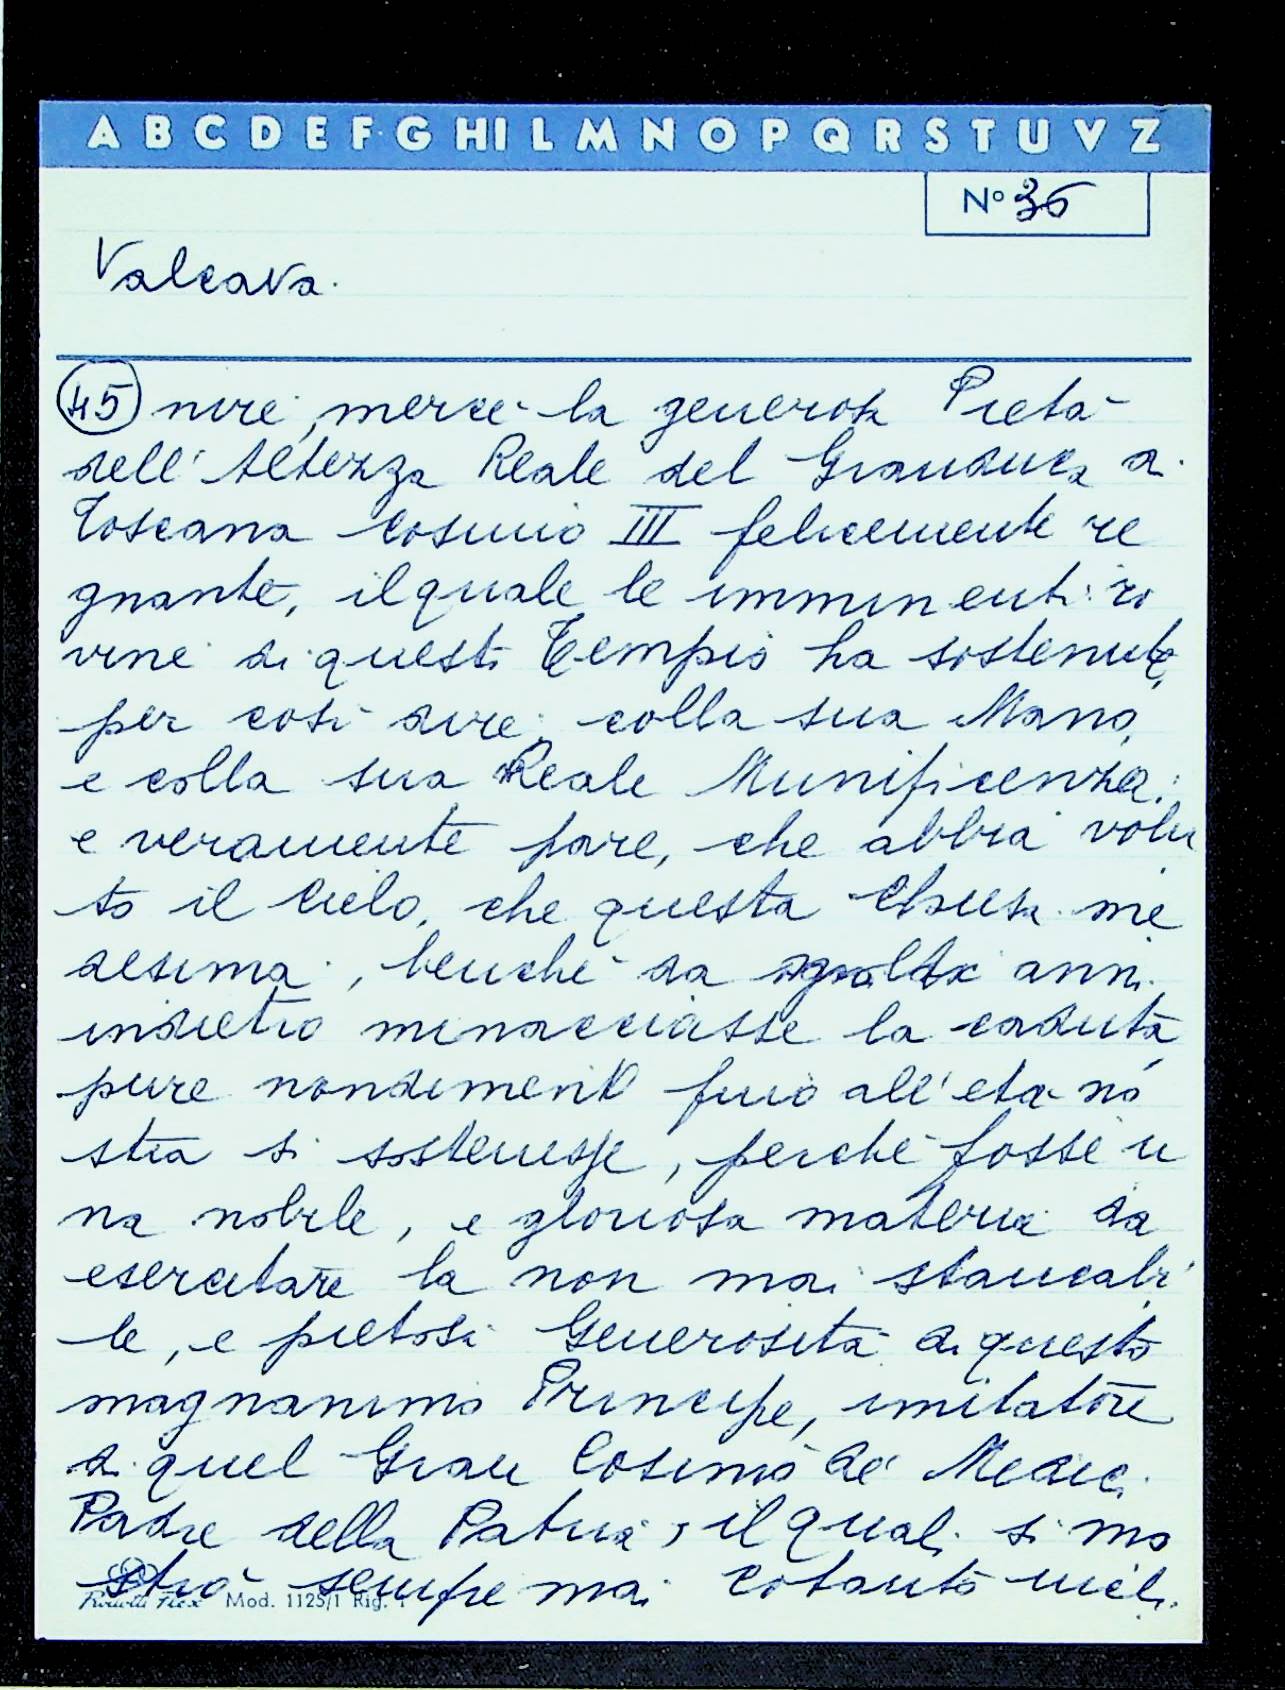 A B C D E F G H I L M N O P Q R S T U V Z
N° 36
Valcava.
45 nire, mercè la generosa Pietà
dell'Altezza Reale del Granduca di
Toscana Cosimo III felicemente re
gnante, il quale le imminenti ro
vine di questo Tempio ha sostenute,
per così dire, colla sua Mano,
e colla sua Reale Munificenza:
e veramente pare, che abbia volu
to il Cielo, che questa Chiesa me
desima, benchè da molti anni
indietro minacciasse la caduta,
pure nondimeno fino all'età no
stra si sostenesse, perchè fosse u
na nobile, e gloriosa materia da
esercitare la non mai stancabi
le, e pietosa Generosità di questo
magnanimo Principe, imitatore
di quel Gran Cosimo de' Medici
Padre della Patria, il quale si mo
strò sempre mai cotanto incli
Mod. 1125/1 Rig. 1